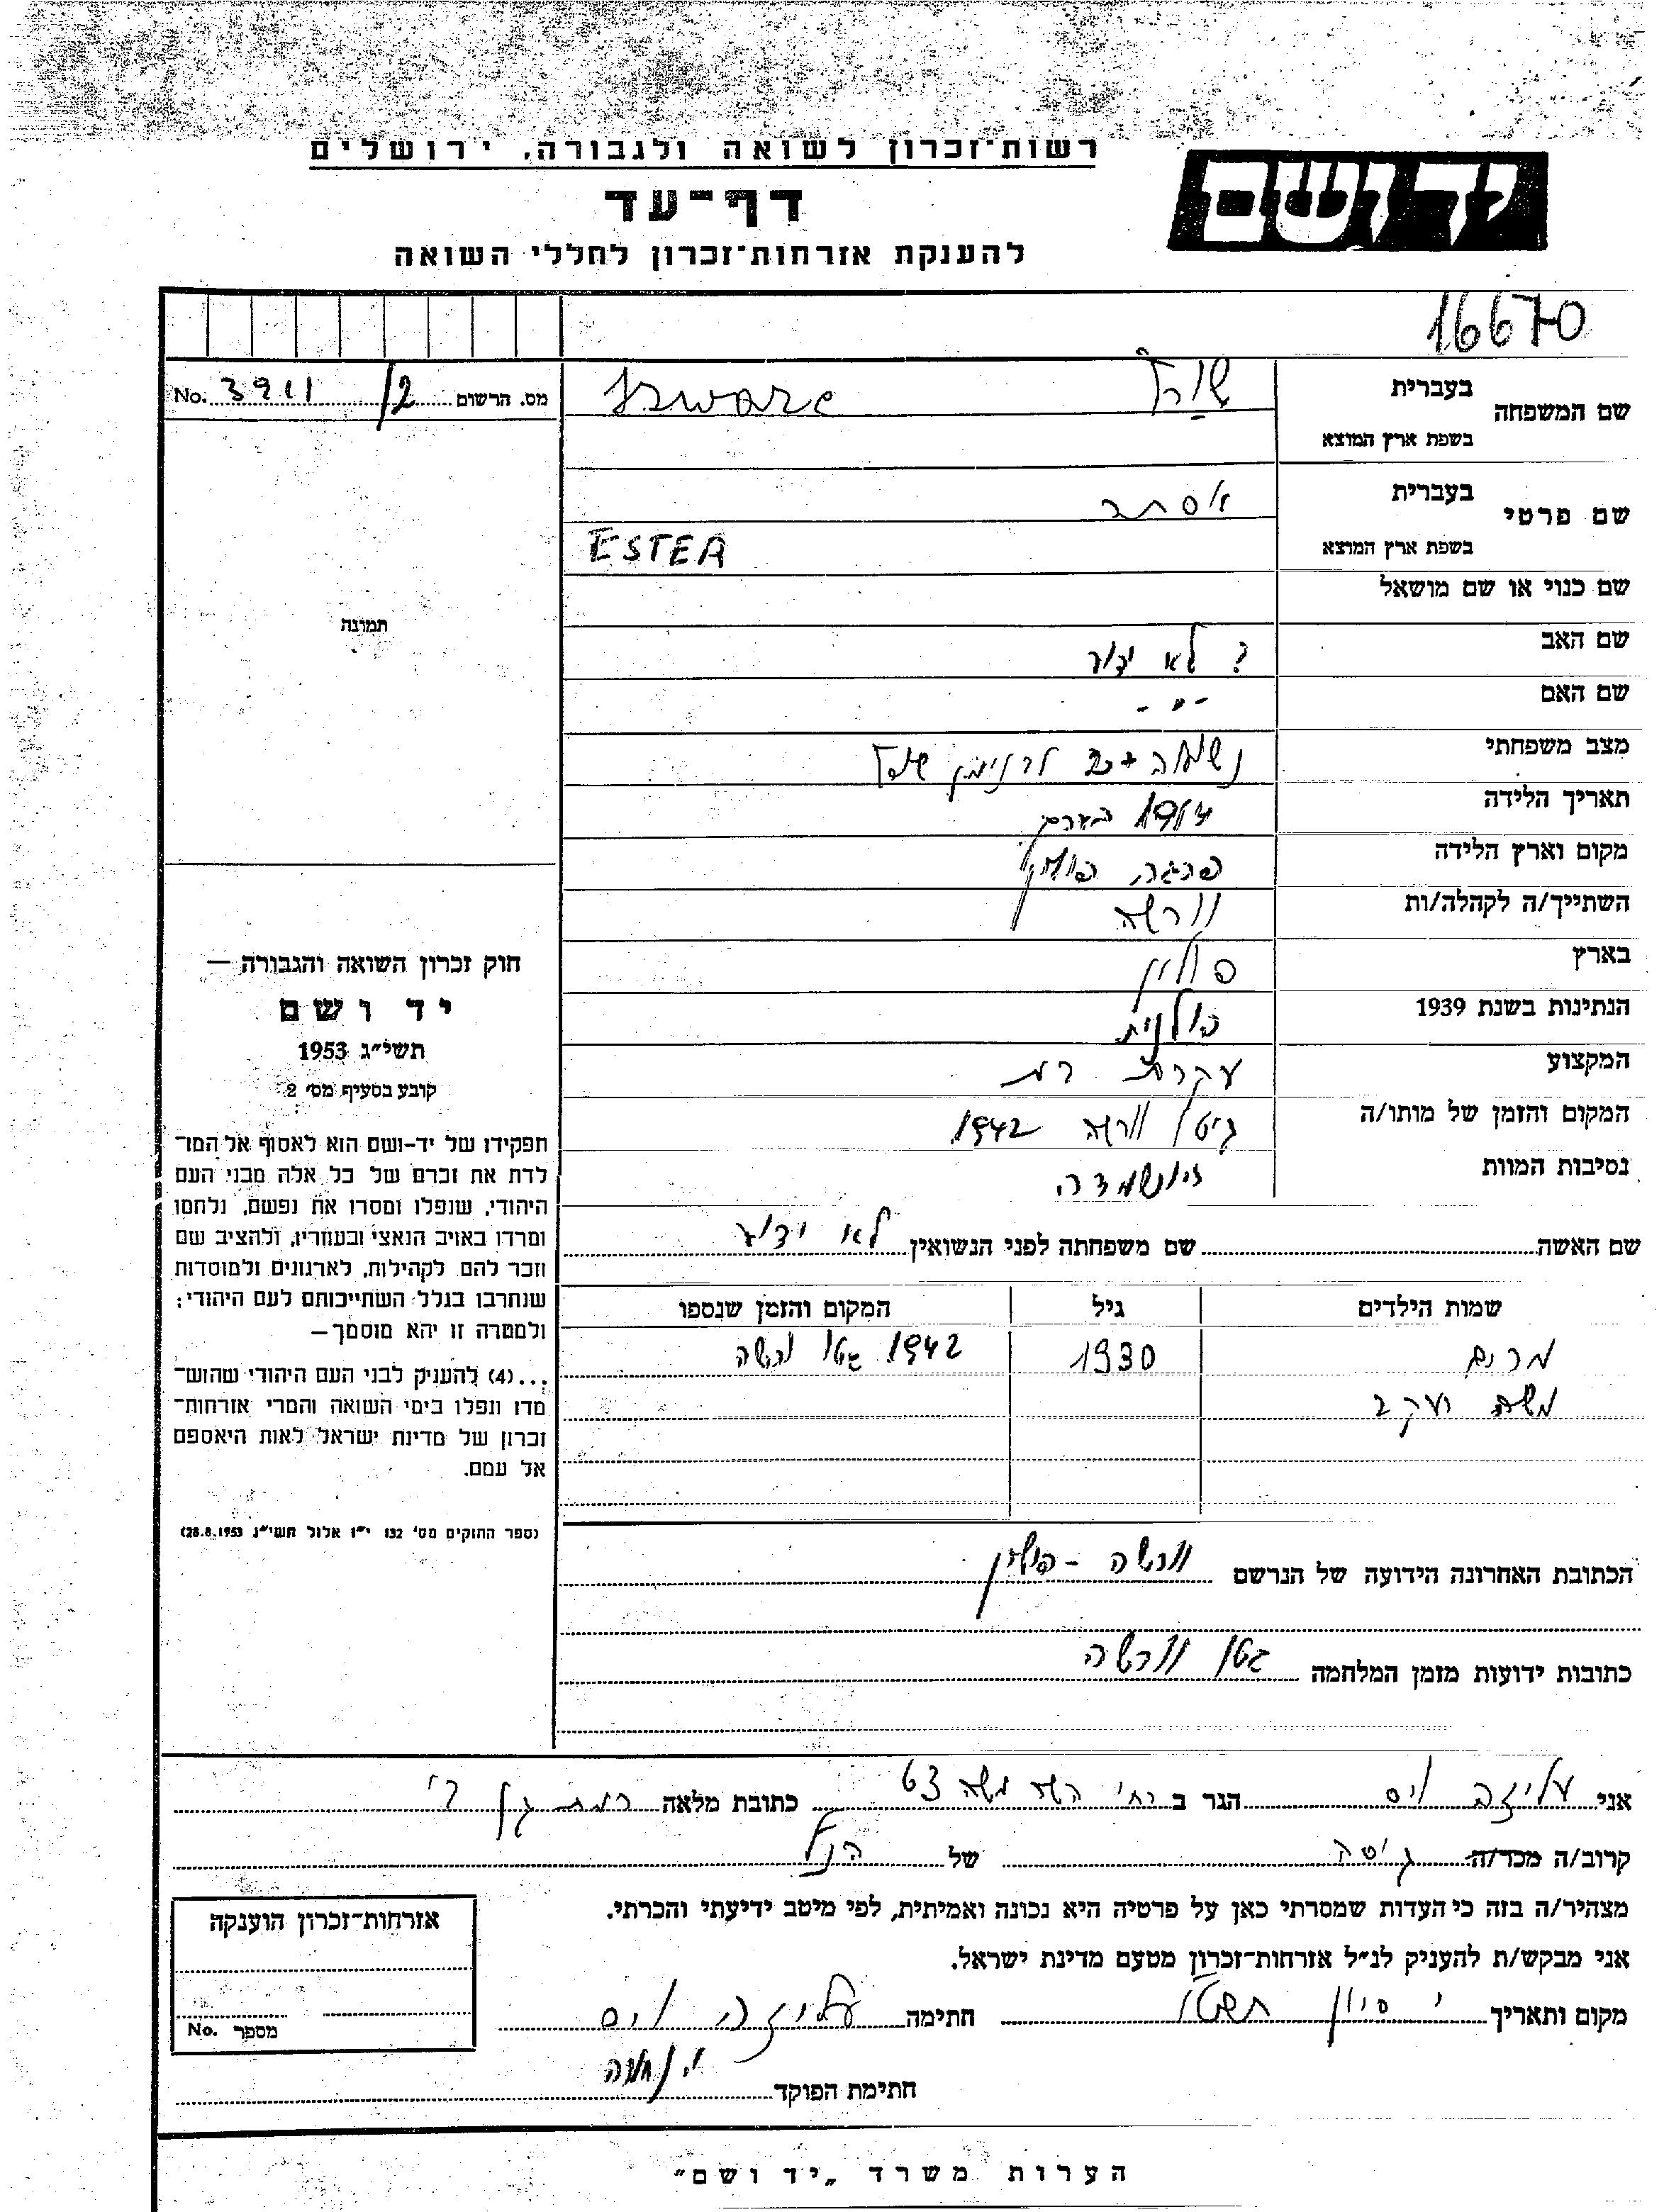 רשות־זכרון לשואה ולגבורה, ירושלים
יד ושם
דף־עד
להענקת אזרחות־זכרון לחללי השואה
16670
מס. הרשום 3911/2 No.
שם המשפחה
בעברית
בשפת ארץ המוצא
שם פרטי
בעברית אסתר
בשפת ארץ המוצא ESTER
שם כנוי או שם מושאל
שם האב ? לא ידוע
שם האם - " -
מצב משפחתי
תאריך הלידה
מקום וארץ הלידה פרגה, פולין
השתייך/ה לקהלה/ות וורשה
בארץ פולין
הנתינות בשנת 1939 פולנית
המקצוע עקרת בית
המקום והזמן של מותו/ה גיטו וורשה 1942
נסיבות המוות
שם האשה שם משפחתה לפני הנשואין לא ידוע
שמות הילדים גיל המקום והזמן שנספו
מרים 1930 1942 גטו ורשה
משה יעקב
הכתובת האחרונה הידועה של הנרשם וורשה - פולין
כתובות ידועות מזמן המלחמה גטו וורשה
תמונה
חוק זכרון השואה והגבורה —
יד ושם
תשי״ג 1953
קובע בסעיף מס׳ 2
תפקידו של יד-ושם הוא לאסוף אל המו־
לדת את זכרם של כל אלה מבני העם
היהודי, שנפלו ומסרו את נפשם, נלחמו
ומרדו באויב הנאצי ובעוזריו, ולהציב שם
וזכר להם לקהילות, לארגונים ולמוסדות
שנחרבו בגלל השתייכותם לעם היהודי;
ולמטרה זו יהא מוסמך—
...(4) להענק לבני העם היהודי שהוש־
מדו ונפלו בימי השואה והמרי אזרחות־
זכרון של מדינת ישראל לאות היאספם
אל עמם.
(ספר החוקים מס׳ 132 י״ז אלול תשי״ג 28.8.1953)
אני עליזה וים הגר ב רח׳ משה כתובת מלאה רמת גן
קרוב/ה מכר/ה גיסה של הנ"ל
מצהיר/ה בזה כי העדות שמסרתי כאן על פרטיה היא נכונה ואמיתית, לפי מיטב ידיעתי והכרתי.
אני מבקש/ת להעניק לנ״ל אזרחות־זכרון מטעם מדינת ישראל.
מקום ותאריך י סיון תשט"ו חתימה עליזה וים
חתימת הפוקד
אזרחות־זכרון הוענקה
מספר No.
הערות משרד „יד ושם״